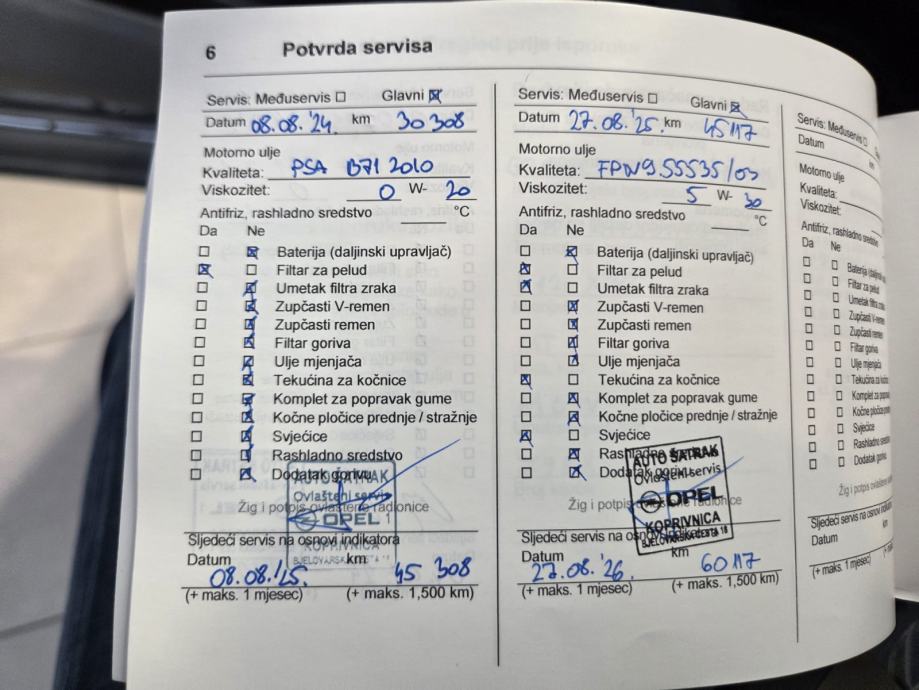 6 Potvrda servisa
Servis: Međuservis ☐ Glavni ☒
Datum 08.08.'24. km 30 308
Motorno ulje
Kvaliteta: PSA B71 2010
Viskozitet: 0 W- 20
Antifriz, rashladno sredstvo °C
Da Ne
☐ ☒ Baterija (daljinski upravljač)
☒ ☐ Filtar za pelud
☐ ☒ Umetak filtra zraka
☐ ☒ Zupčasti V-remen
☐ ☒ Zupčasti remen
☐ ☒ Filtar goriva
☐ ☒ Ulje mjenjača
☐ ☒ Tekućina za kočnice
☐ ☒ Komplet za popravak gume
☐ ☒ Kočne pločice prednje / stražnje
☐ ☒ Svjećice
☐ ☒ Rashladno sredstvo
☐ ☒ Dodatak gorivu
AUTO ŠATRAK
Ovlašteni servis
Žig i potpis ovlaštene radionice
OPEL
KOPRIVNICA
Sljedeći servis na osnovi indikatora
Datum km
08.08.'25. 45 308
(+ maks. 1 mjesec) (+ maks. 1,500 km)
Servis: Međuservis ☐ Glavni ☒
Datum 27.08.'25. km 45117
Motorno ulje
Kvaliteta: FPW9.55535/03
Viskozitet: 5 W- 30
Antifriz, rashladno sredstvo °C
Da Ne
☐ ☒ Baterija (daljinski upravljač)
☒ ☐ Filtar za pelud
☒ ☐ Umetak filtra zraka
☐ ☒ Zupčasti V-remen
☐ ☒ Zupčasti remen
☐ ☒ Filtar goriva
☐ ☒ Ulje mjenjača
☒ ☐ Tekućina za kočnice
☐ ☒ Komplet za popravak gume
☐ ☒ Kočne pločice prednje / stražnje
☒ ☐ Svjećice
☐ ☒ Rashladno sredstvo
☐ ☒ Dodatak gorivu
AUTO ŠATRAK
Ovlašteni servis
OPEL
KOPRIVNICA
BJELOVARSKA CESTA
Žig i potpis ovlaštene radionice
Sljedeći servis na osnovi indikatora
Datum km
27.08.'26. 60117
(+ maks. 1 mjesec) (+ maks. 1,500 km)
Servis: Međuservis ☐
Datum
Motorno ulje
Kvaliteta:
Viskozitet:
Antifriz, rashladno
Da Ne
☐ ☐ Baterija
☐ ☐ Filtar za pelud
☐ ☐ Umetak filtra
☐ ☐ Zupčasti
☐ ☐ Zupčasti remen
☐ ☐ Filtar goriva
☐ ☐ Ulje mjenjača
☐ ☐ Tekućina za
☐ ☐ Komplet za
☐ ☐ Kočne pločice
☐ ☐ Svjećice
☐ ☐ Rashladno
☐ ☐ Dodatak
Žig i potpis
Sljedeći servis na osnovi
Datum
(+ maks. 1 mjesec)